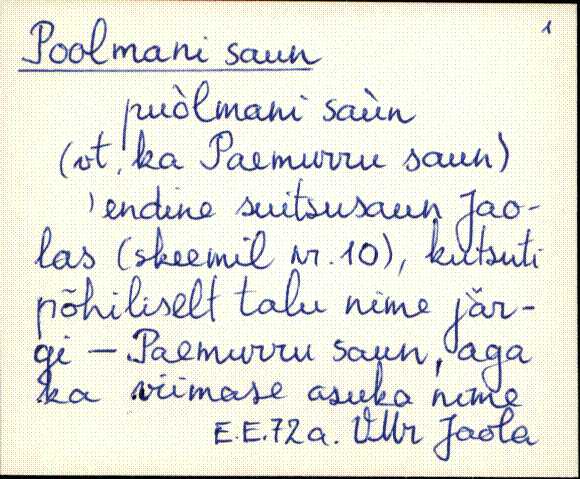 1
Poolmani saun
puòlmani saùn
(vt. ka Paemurru saun)
'endine suitsusaun Jao-
las (skeemil nr. 10), kutsuti
põhiliselt talu nime jär-
gi – Paemurru saun, aga
ka viimase asuka nime
E.E.72a. VMr Jaola